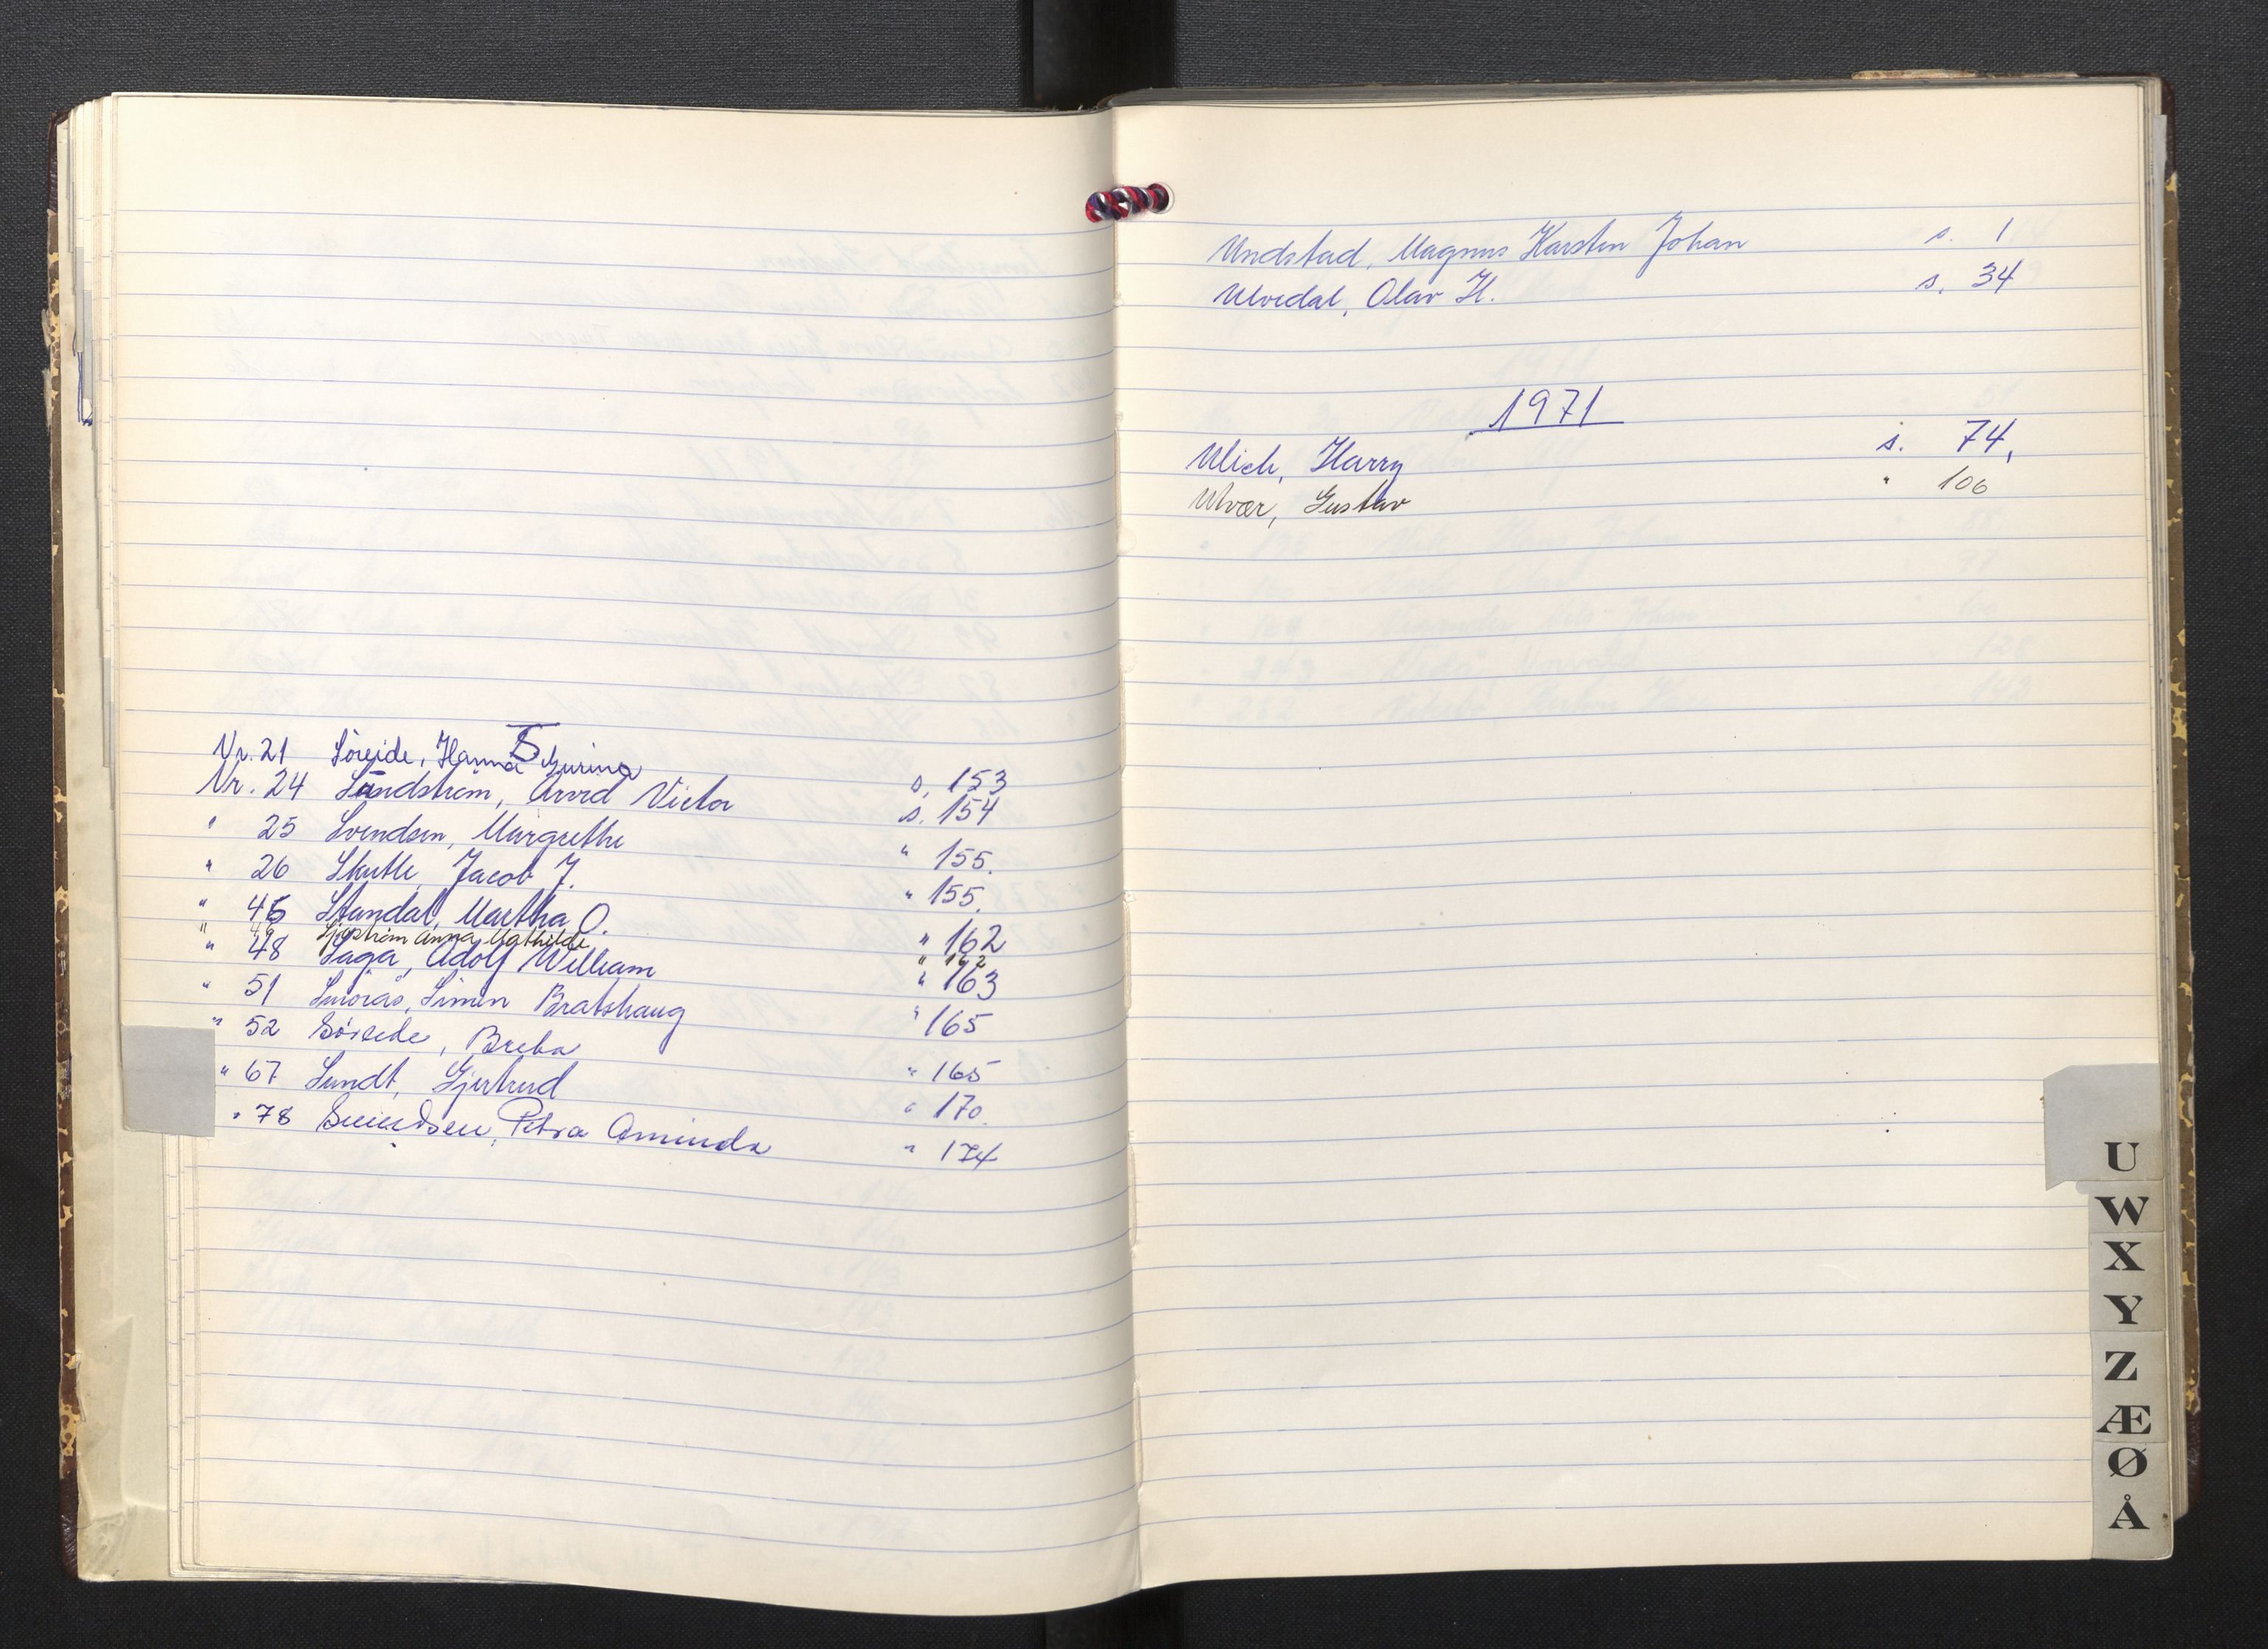 S
Nr. 21 Söreide, Hanna Gurina s. 153
Nr. 24 Sandström, Arvid Victor s. 154
" 25 Svendsen, Margrethe " 155.
" 26 Skutle, Jacob J. " 155.
" 45 Standal, Martha O. " 162
" Sjøstrøm Anna Mathilde " 162
" 48 Saga, Adolf William " 163
" 51 Snorås, Simen Bratshaug " 165
" 52 Söreide, Breta " 165
" 67 Sundt, Gjertrud " 170.
" 78 Petra Aminda " 174
Undstad, Magnus Karsten Johan s. 1
Ulvedal, Olav H. s. 34
1971
Ulich, Harry s. 74,
Ulvær, Gustav " 106
U
W
X
Y
Z
Æ
Ø
Å